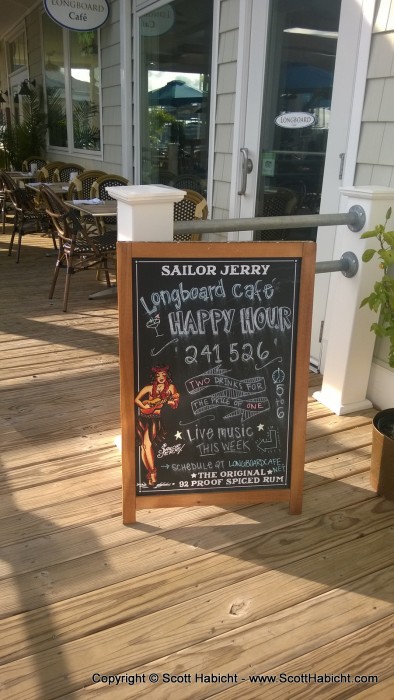 LONGBOARD
Café
LONGBOARD
SAILOR JERRY
Longboard Café
HAPPY HOUR
241 526
TWO DRINKS FOR
THE PRICE OF ONE
5 to 6
Live music
THIS WEEK
→ SCHEDULE AT LONGBOARDCAFE
.NET
★THE ORIGINAL★
92 PROOF SPICED RUM
Copyright © Scott Habicht - www.ScottHabicht.com